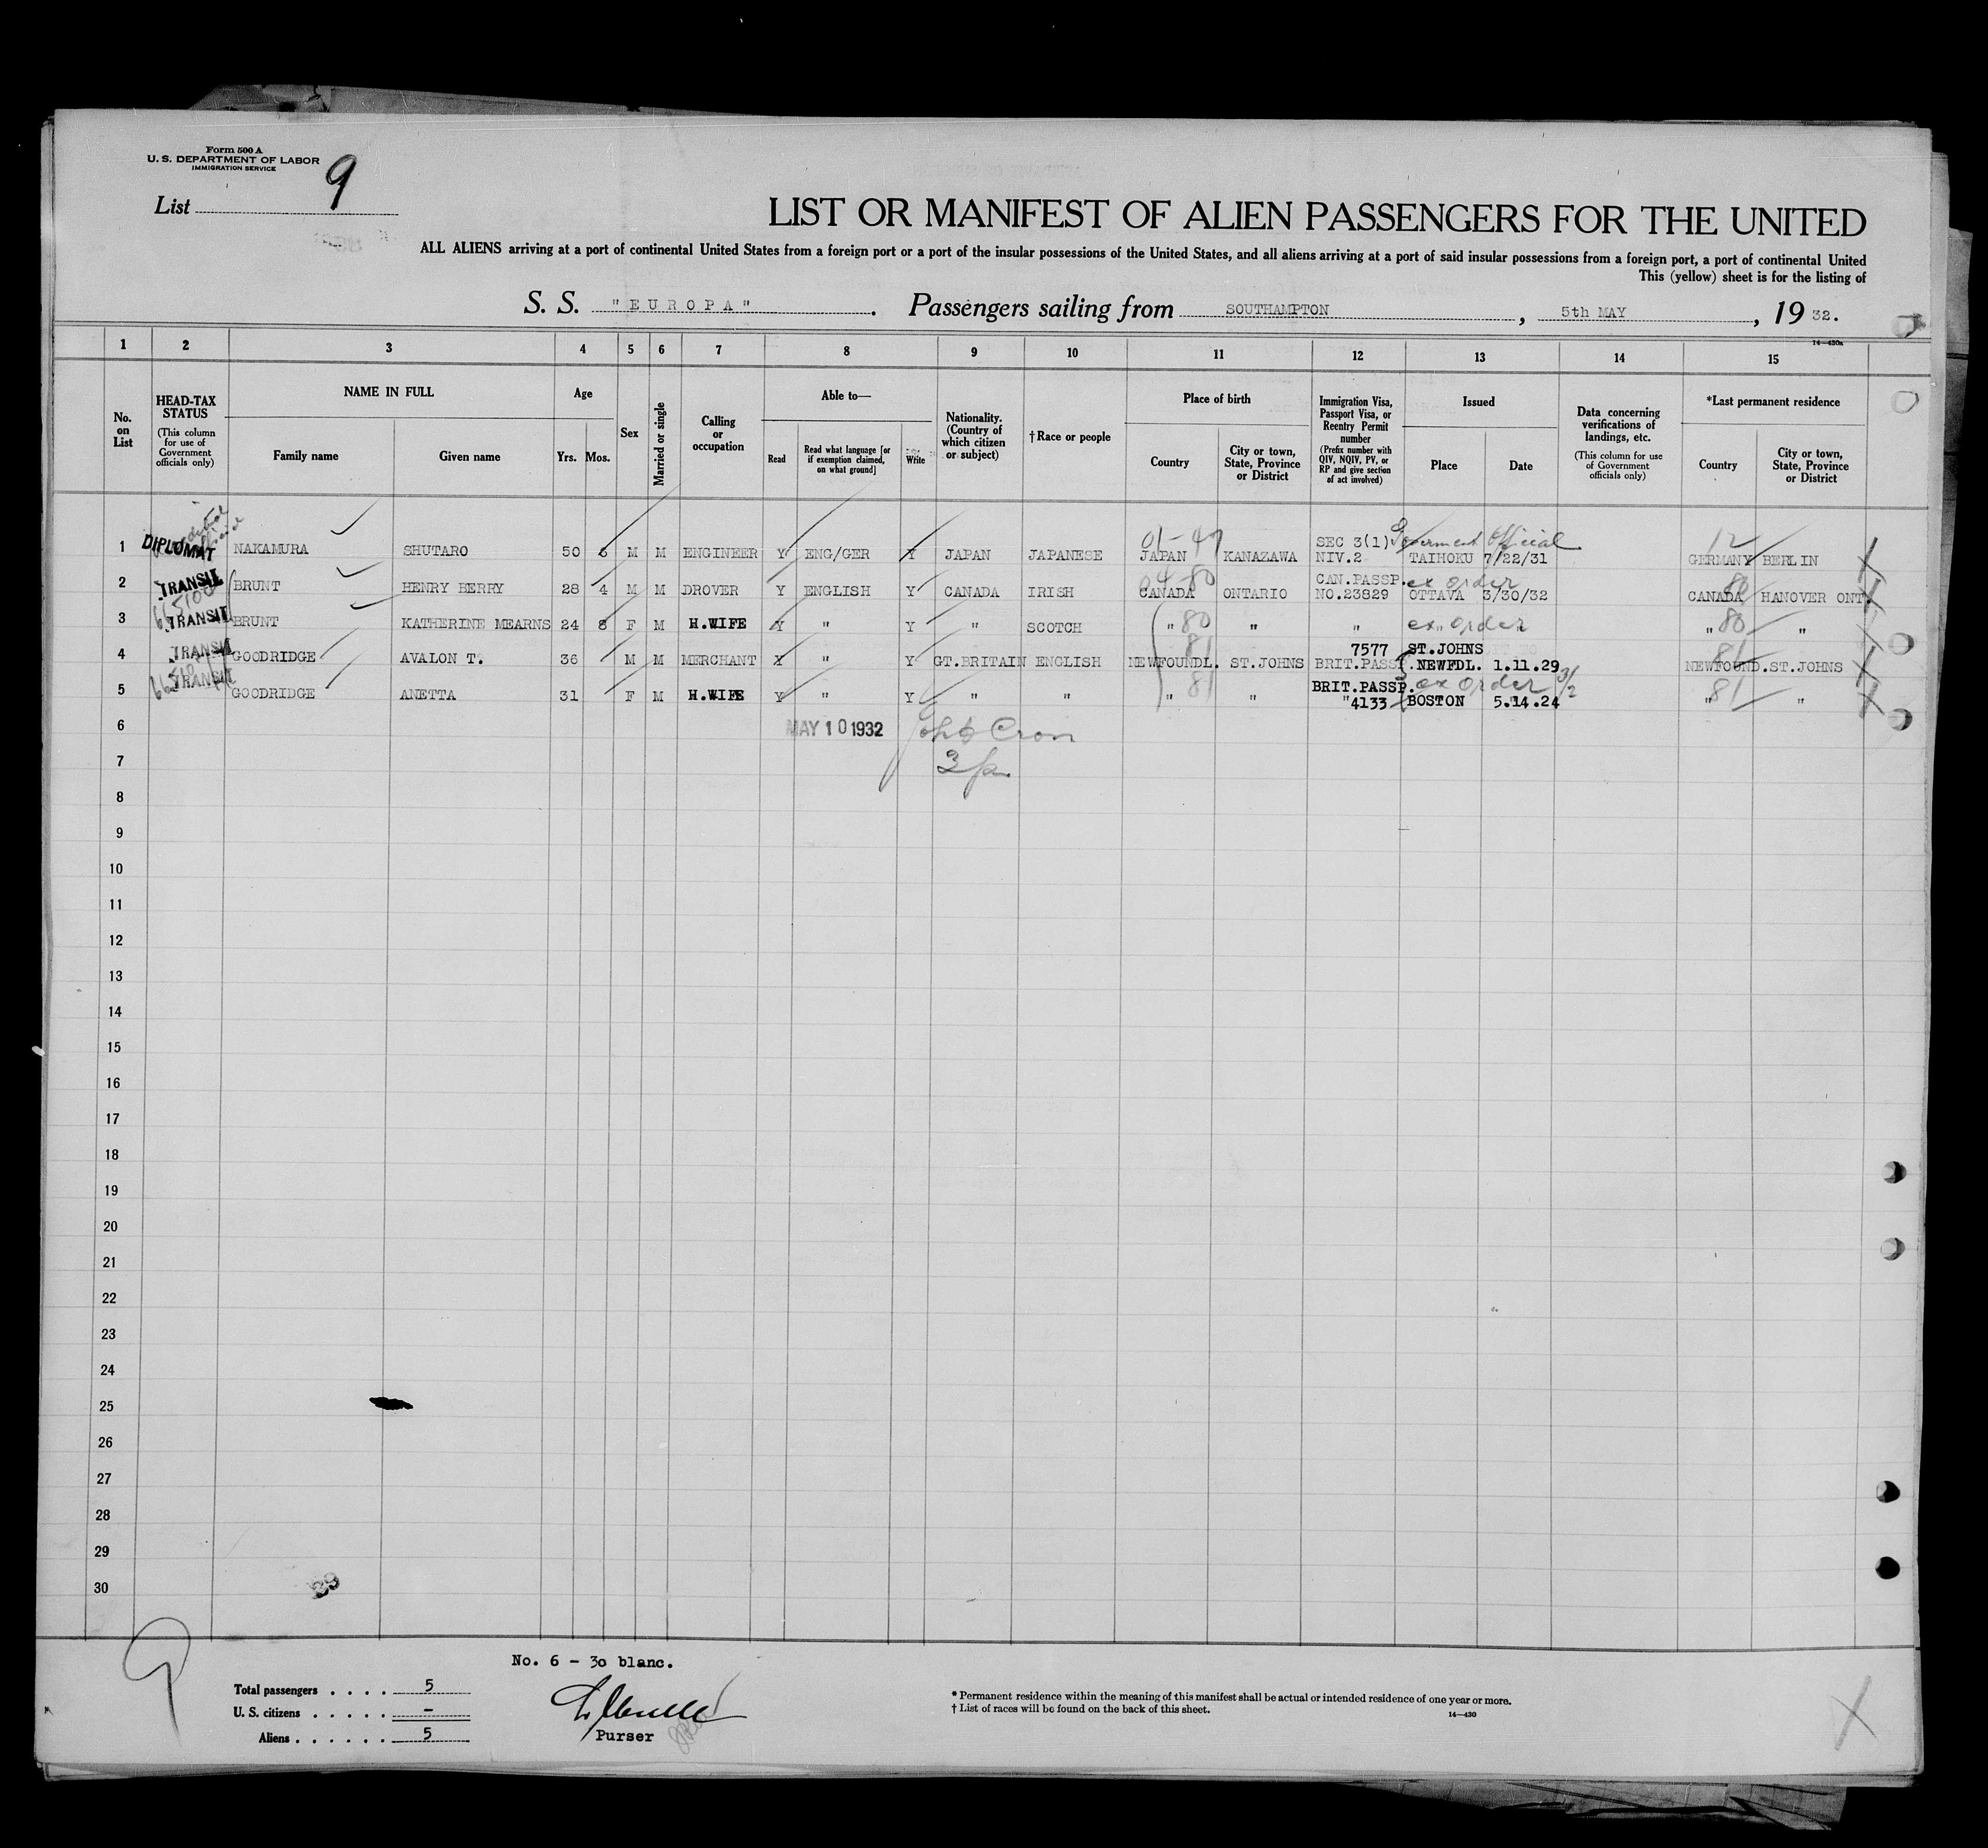 Form 500 A
U. S. DEPARTMENT OF LABOR
IMMIGRATION SERVICE
List 9
LIST OR MANIFEST OF ALIEN PASSENGERS FOR THE UNITED
ALL ALIENS arriving at a port of continental United States from a foreign port or a port of the insular possessions of the United States, and all aliens arriving at a port of said insular possessions from a foreign port, a port of continental United
This (yellow) sheet is for the listing of
S. S. "EUROPA". Passengers sailing from SOUTHAMPTON, 5th MAY, 19 32.
14—430a
1 2 3 4 5 6 7 8 9 10 11 12 13 14 15
No. on List
HEAD-TAX STATUS (This column for use of Government officials only)
NAME IN FULL Family name Given name
Age Yrs. Mos.
Sex
Married or single
Calling or occupation
Able to— Read Read what language [or if exemption claimed, on what ground] Write
Nationality. (Country of which citizen or subject)
†Race or people
Place of birth Country City or town, State, Province or District
Immigration Visa, Passport Visa, or Reentry Permit number (Prefix number with QIV, NQIV, PV, or RP and give section of act involved)
Issued Place Date
Data concerning verifications of landings, etc. (This column for use of Government officials only)
*Last permanent residence Country City or town, State, Province or District
01-47 SEC 3(1) Government Official 12
1 DIPLOMAT NAKAMURA SHUTARO 50 6 M M ENGINEER Y ENG/GER Y JAPAN JAPANESE JAPAN KANAZAWA NIV.2 TAIHOKU 7/22/31 GERMANY BERLIN
04-80 CAN.PASSP. ex order 80
2 TRANSIT BRUNT HENRY BERRY 28 4 M M DROVER Y ENGLISH Y CANADA IRISH CANADA ONTARIO NO.23829 OTTAVA 3/30/32 CANADA HANOVER ONT.
3 TRANSIT BRUNT KATHERINE MEARNS 24 8 F M H.WIFE Y " Y " SCOTCH " 80 " " ex order " 80 "
81 7577 ST.JOHNS 81
4 TRANSIT GOODRIDGE AVALON T. 36 M M MERCHANT Y " Y GT.BRITAIN ENGLISH NEWFOUNDL. ST.JOHNS BRIT.PASS. NEWFDL. 1.11.29 NEWFOUND. ST.JOHNS
81 BRIT.PASSP. ex order 3/2 81
5 TRANSIT GOODRIDGE ANETTA 31 F M H.WIFE Y " Y " " " " "4133 BOSTON 5.14.24 " "
6 MAY 10 1932 Cron
7
8
9
10
11
12
13
14
15
16
17
18
19
20
21
22
23
24
25
26
27
28
29
30
9
No. 6 - 30 blanc.
Total passengers . . . . 5
U. S. citizens . . . . . –
Aliens . . . . . . 5
Purser
* Permanent residence within the meaning of this manifest shall be actual or intended residence of one year or more.
† List of races will be found on the back of this sheet.
14—430